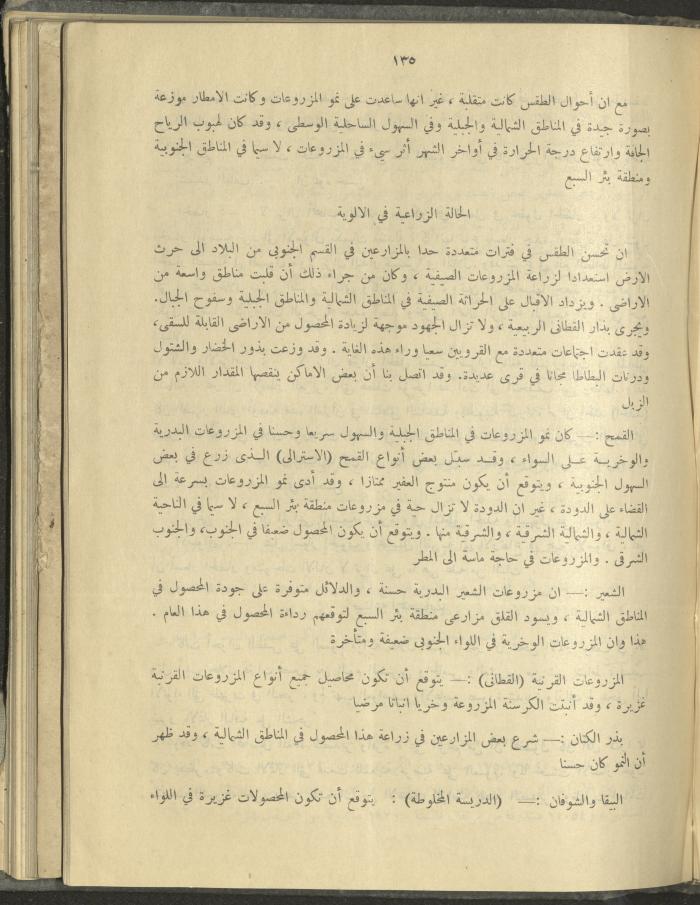 ١٣٥
مع ان أحوال الطقس كانت متقلبة ، غير انها ساعدت على نمو المزروعات وكانت الامطار موزعة
بصورة جيدة في المناطق الشمالية والجبلية وفي السهول الساحلية الوسطى ، وقد كان لهبوب الرياح
الجافة وارتفاع درجة الحرارة في أواخر الشهر أثر سيء في المزروعات ، لا سيما في المناطق الجنوبية
ومنطقة بئر السبع
الحالة الزراعية في الالوية
ان تحسن الطقس في فترات متعددة حدا بالمزارعين في القسم الجنوبي من البلاد الى حرث
الارض استعدادا لزراعة المزروعات الصيفية ، وكان من جراء ذلك أن قلبت مناطق واسعة من
الاراضي . ويزداد الاقبال على الحراثة الصيفية في المناطق الشمالية والمناطق الجبلية وسفوح الجبال.
ويجرى بذار القطانى الربيعية ، ولا تزال الجهود موجهة لزيادة المحصول من الاراضى القابلة للسقى،
وقد عقدت اجتماعات متعددة مع القرويين سعيا وراء هذه الغاية . وقد وزعت بذور الخضار والشتول
ودرنات البطاطا مجانا في قرى عديدة. وقد اتصل بنا أن بعض الاماكن ينقصها المقدار اللازم من
الزبل
القمح :— كان نمو المزروعات في المناطق الجبلية والسهول سريعا وحسنا في المزروعات البدرية
والوخرية على السواء ، وقد سبّل بعض أنواع القمح (الاسترالى) الذى زرع في بعض
السهول الجنوبية ، ويتوقع أن يكون منتوج العفير ممتازا ، وقد أدى نمو المزروعات بسرعة الى
القضاء على الدودة ، غير ان الدودة لا تزال حية في مزروعات منطقة بئر السبع ، لا سيما في الناحية
الشمالية ، والشمالية الشرقية ، والشرقية منها . ويتوقع أن يكون المحصول ضعيفا في الجنوب، والجنوب
الشرقى . والمزروعات في حاجة ماسة الى المطر
الشعير :— ان مزروعات الشعير البدرية حسنة ، والدلائل متوفرة على جودة المحصول في
المناطق الشمالية ، ويسود القلق مزارعى منطقة بئر السبع لتوقعهم رداءة المحصول في هذا العام .
هذا وان المزروعات الوخرية في اللواء الجنوبى ضعيفة ومتأخرة
المزروعات القرنية (القطانى) :— يتوقع أن تكون محاصيل جميع أنواع المزروعات القرنية
غزيرة ، وقد أنبتت الكرسنة المزروعة وخريا انباتا مرضيا
بذر الكتان :— شرع بعض المزارعين في زراعة هذا المحصول في المناطق الشمالية ، وقد ظهر
أن النمو كان حسنا
البيقا والشوفان :— (الدريسة المخلوطة) : يتوقع أن تكون المحصولات غزيرة في اللواء